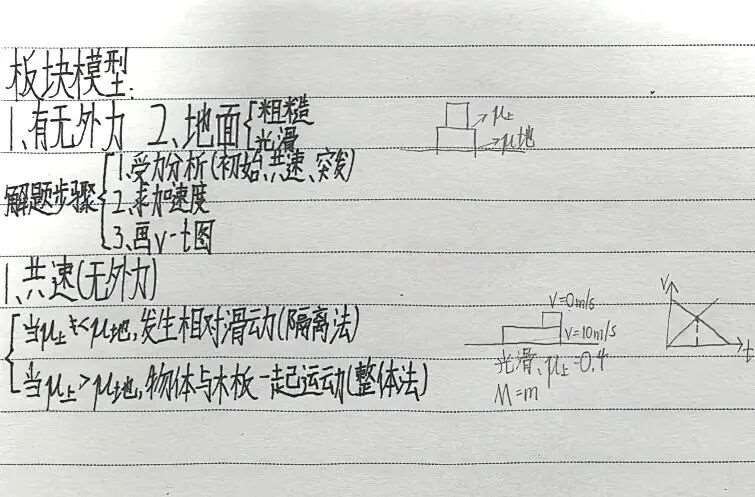 板块模型.
1、有无外力 2、地面{粗糙 光滑
μ上
μ地
解题步骤
1、受力分析(初始、共速、突发)
2、求加速度
3、画v-t图
1、共速(无外力)
当μ上<μ地,发生相对滑动(隔离法)
当μ上>μ地,物体与木板一起运动(整体法)
V=0m/s
V=10m/s
光滑、μ上=0.4
M=m
V
t